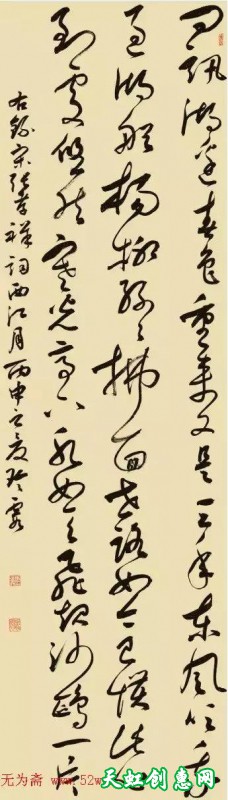 问讯湖边春色重来又是三年东风吹我
过湖船杨柳丝丝拂面世路如今已惯此心
到处悠然寒光亭下水如天飞起沙鸥一片
右録宋张孝祥词西江月丙申立夏玲霞
无为斋 www.52w
天虹创惠网